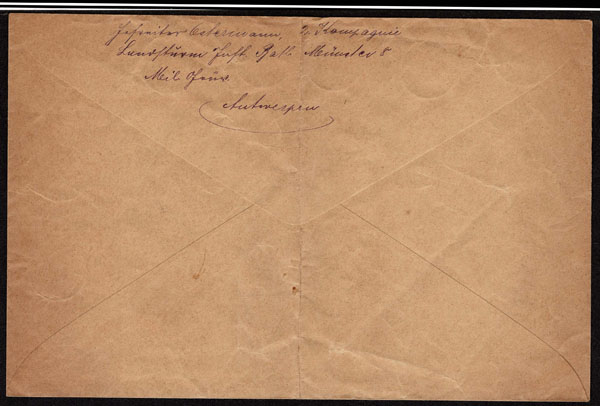 Gefreiter Ostermann, 2. Kompagnie
Landsturm Inft. Batl. Münster 8
Mil
Antwerpen